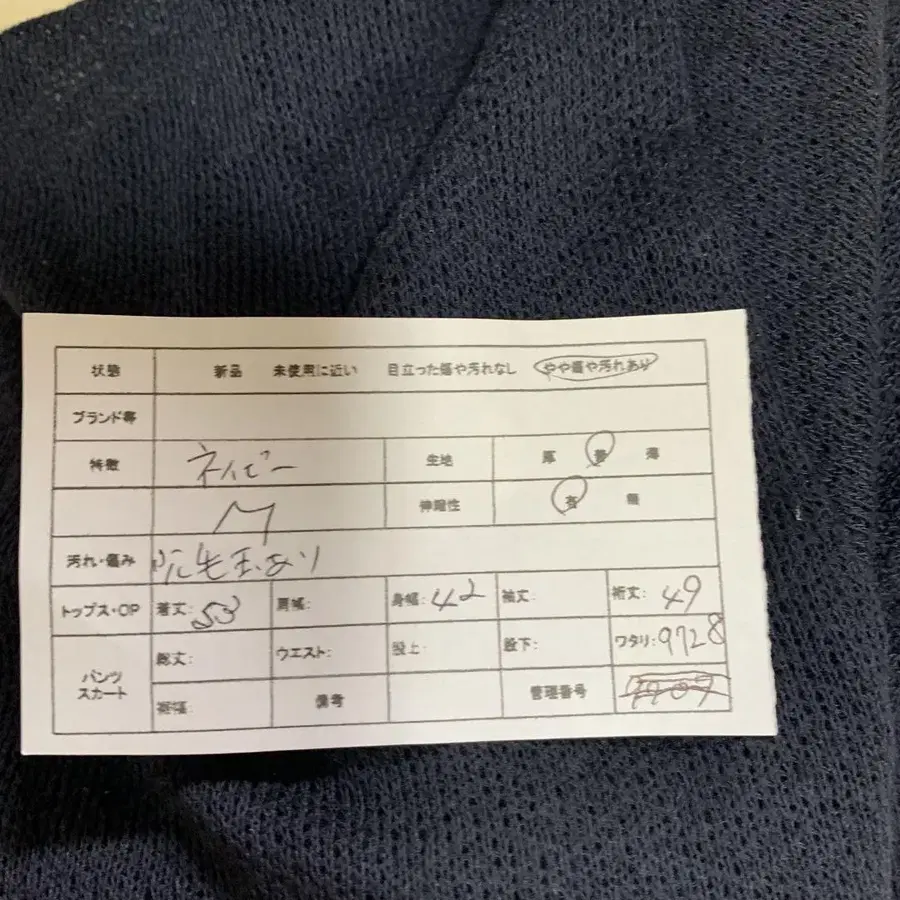 状態 新品 未使用に近い 目立った傷や汚れなし やや傷や汚れあり
ブランド等
特徴 ネイビー 生地 厚 普 薄
M 伸縮性 有 無
汚れ・傷み 毛玉あり
トップス・OP 着丈: 53 肩幅: 身幅: 42 袖丈: 裄丈: 49
パンツ スカート 総丈: ウエスト: 股上: 股下: ワタリ: 9728
裾幅: 備考 管理番号